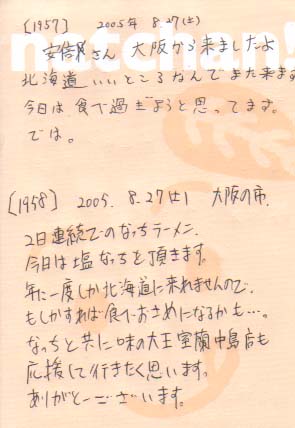 natchan!
[1957] 2005年 8.27(土)
安倍さん 大阪から来ましたよ
北海道 いいところなんでまた来ます
今日は食べ過ぎようと思ってます。
では。
[1958] 2005. 8.27(土) 大阪の市.
2日連続でのなっちラーメン.
今日は塩なっちを頂きます。
年に一度しか北海道に来れませんので、
もしかすれば食べおさめになるかも…。
なっちと共に味の大王室蘭中島店も
応援して行きたく思います。
ありがとーございます。